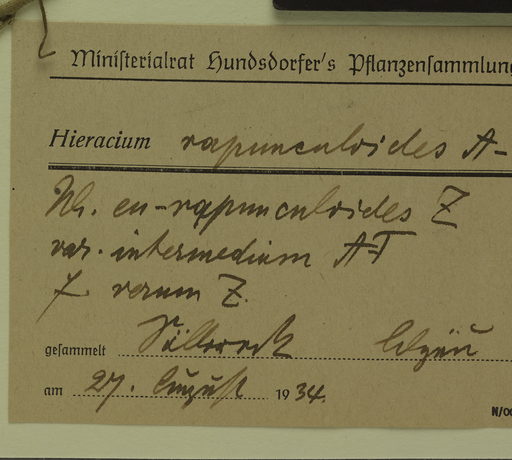 Ministerialrat Hundsdorfer's Pflanzensammlung
Hieracium rapunculoides A-
eu-rapunculoides Z
var. intermedium AT
f verum Z.
gesammelt Allgäu
am 27. August 1934.
N/00